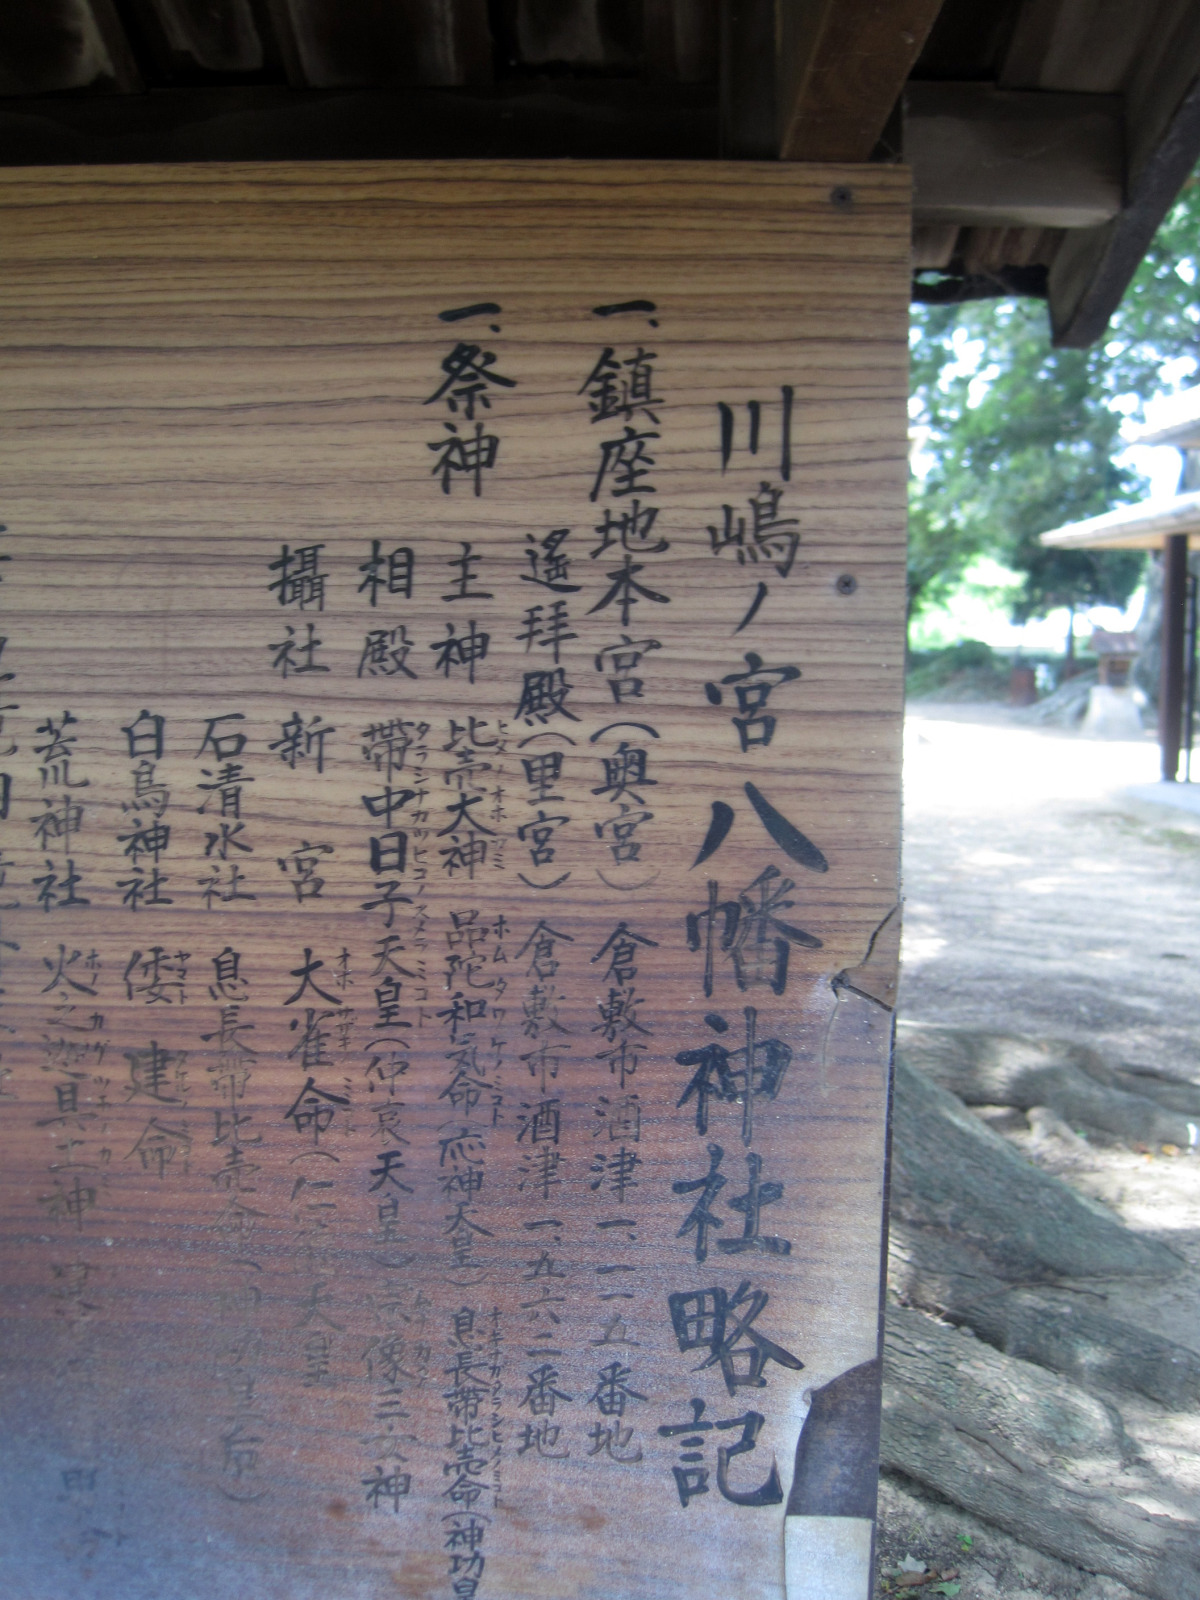 川嶋ノ宮八幡神社略記
一、鎮座地本宮(奥宮) 倉敷市酒津一、一一五番地
遙拝殿(里宮) 倉敷市酒津一、九六二番地
一、祭神
主神 比売大神 品陀和気命(応神天皇) 息長帯比売命(神功皇
相殿 帯中日子天皇(仲哀天皇) 宗像三女神
攝社 新宮 大雀命(仁徳天皇
石清水社 息長帯比売命(神功皇后)
白鳥神社 倭建命
荒神社 火之迦具土神